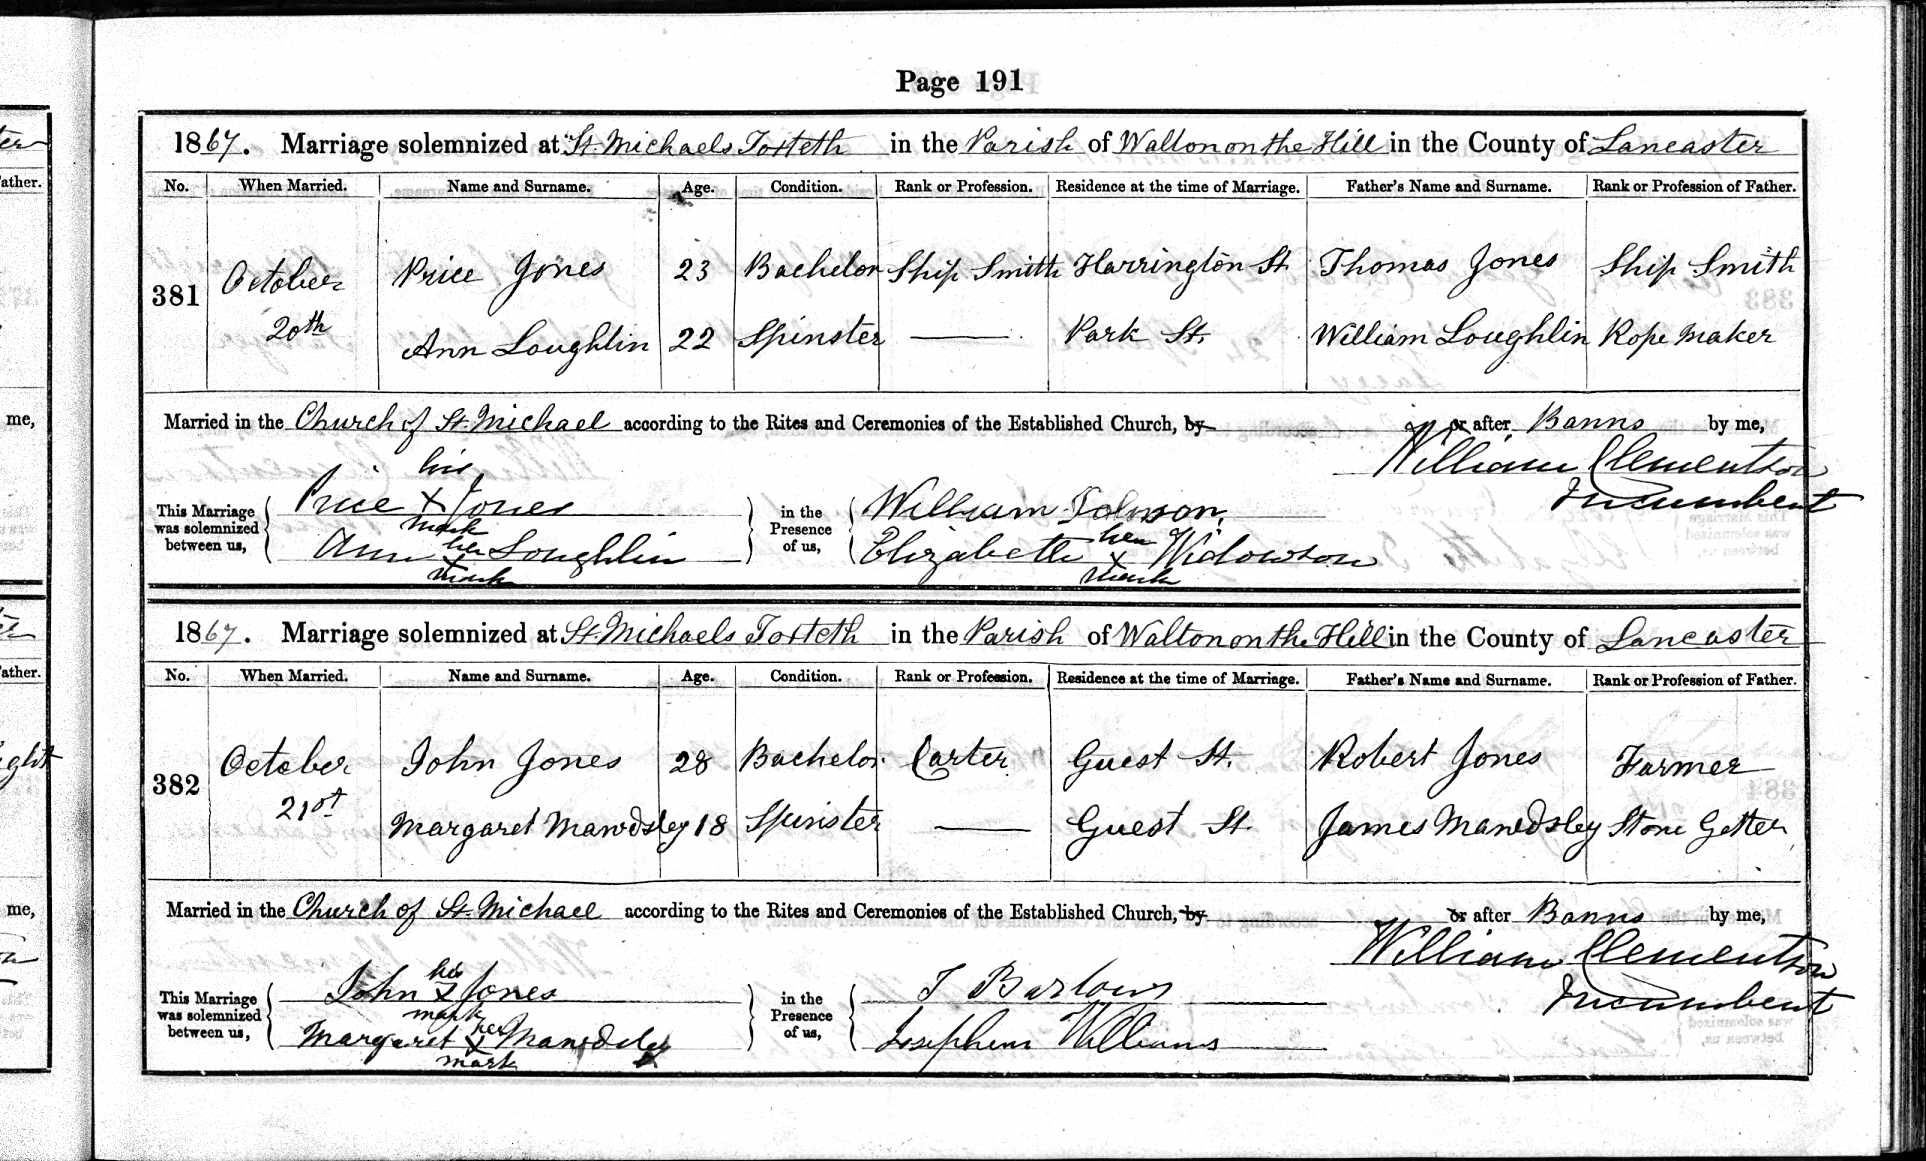 Page 191
1867. Marriage solemnized at St. Michaels Toxteth in the Parish of Walton on the Hill in the County of Lancaster
No. When Married. Name and Surname. Age. Condition. Rank or Profession. Residence at the time of Marriage. Father's Name and Surname. Rank or Profession of Father.
381 October 20th Price Jones 23 Bachelor Ship Smith Harrington St. Thomas Jones Ship Smith
Ann Loughlin 22 Spinster — Park St. William Loughlin Rope Maker
Married in the Church of St. Michael according to the Rites and Ceremonies of the Established Church, by or after Banns by me,
William Clementson
Incumbent
This Marriage was solemnized between us, Price his x mark Jones in the Presence of us, William Johnson
Ann her x mark Loughlin Elizabeth her x mark Widowson
1867. Marriage solemnized at St. Michaels Toxteth in the Parish of Walton on the Hill in the County of Lancaster
No. When Married. Name and Surname. Age. Condition. Rank or Profession. Residence at the time of Marriage. Father's Name and Surname. Rank or Profession of Father.
382 October 21st John Jones 28 Bachelor Carter Guest St. Robert Jones Farmer
Margaret Mawdsley 18 Spinster — Guest St. James Mawdsley Stone Getter
Married in the Church of St. Michael according to the Rites and Ceremonies of the Established Church, by or after Banns by me,
William Clementson
Incumbent
This Marriage was solemnized between us, John his x mark Jones in the Presence of us, T Barlow
Margaret her x mark Mawdsley Williams
me,
me,